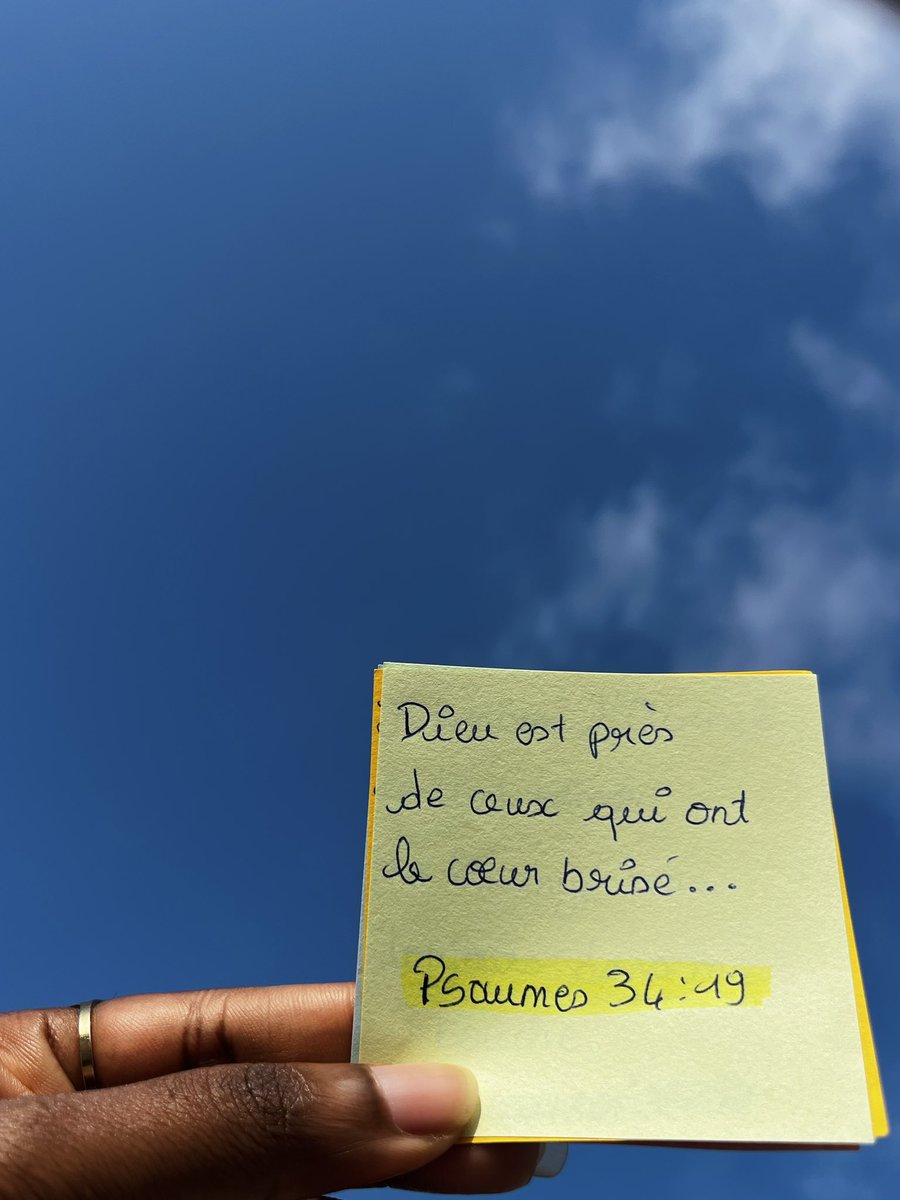 Dieu est près
de ceux qui ont
le cœur brisé...
Psaumes 34:19